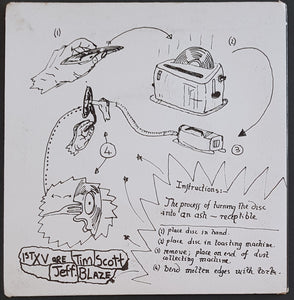 (1)
(2)
(3)
(4)
Instructions:-
The process of turning the disc
into an ash-receptible.
(1) place disc in hand.
(2) place disc in toasting machine.
(3) remove; place on end of dust
collecting machine.
(4) bend molten edges with teeth.
1ST XV are Tim Scott
Jeff BLAZE!